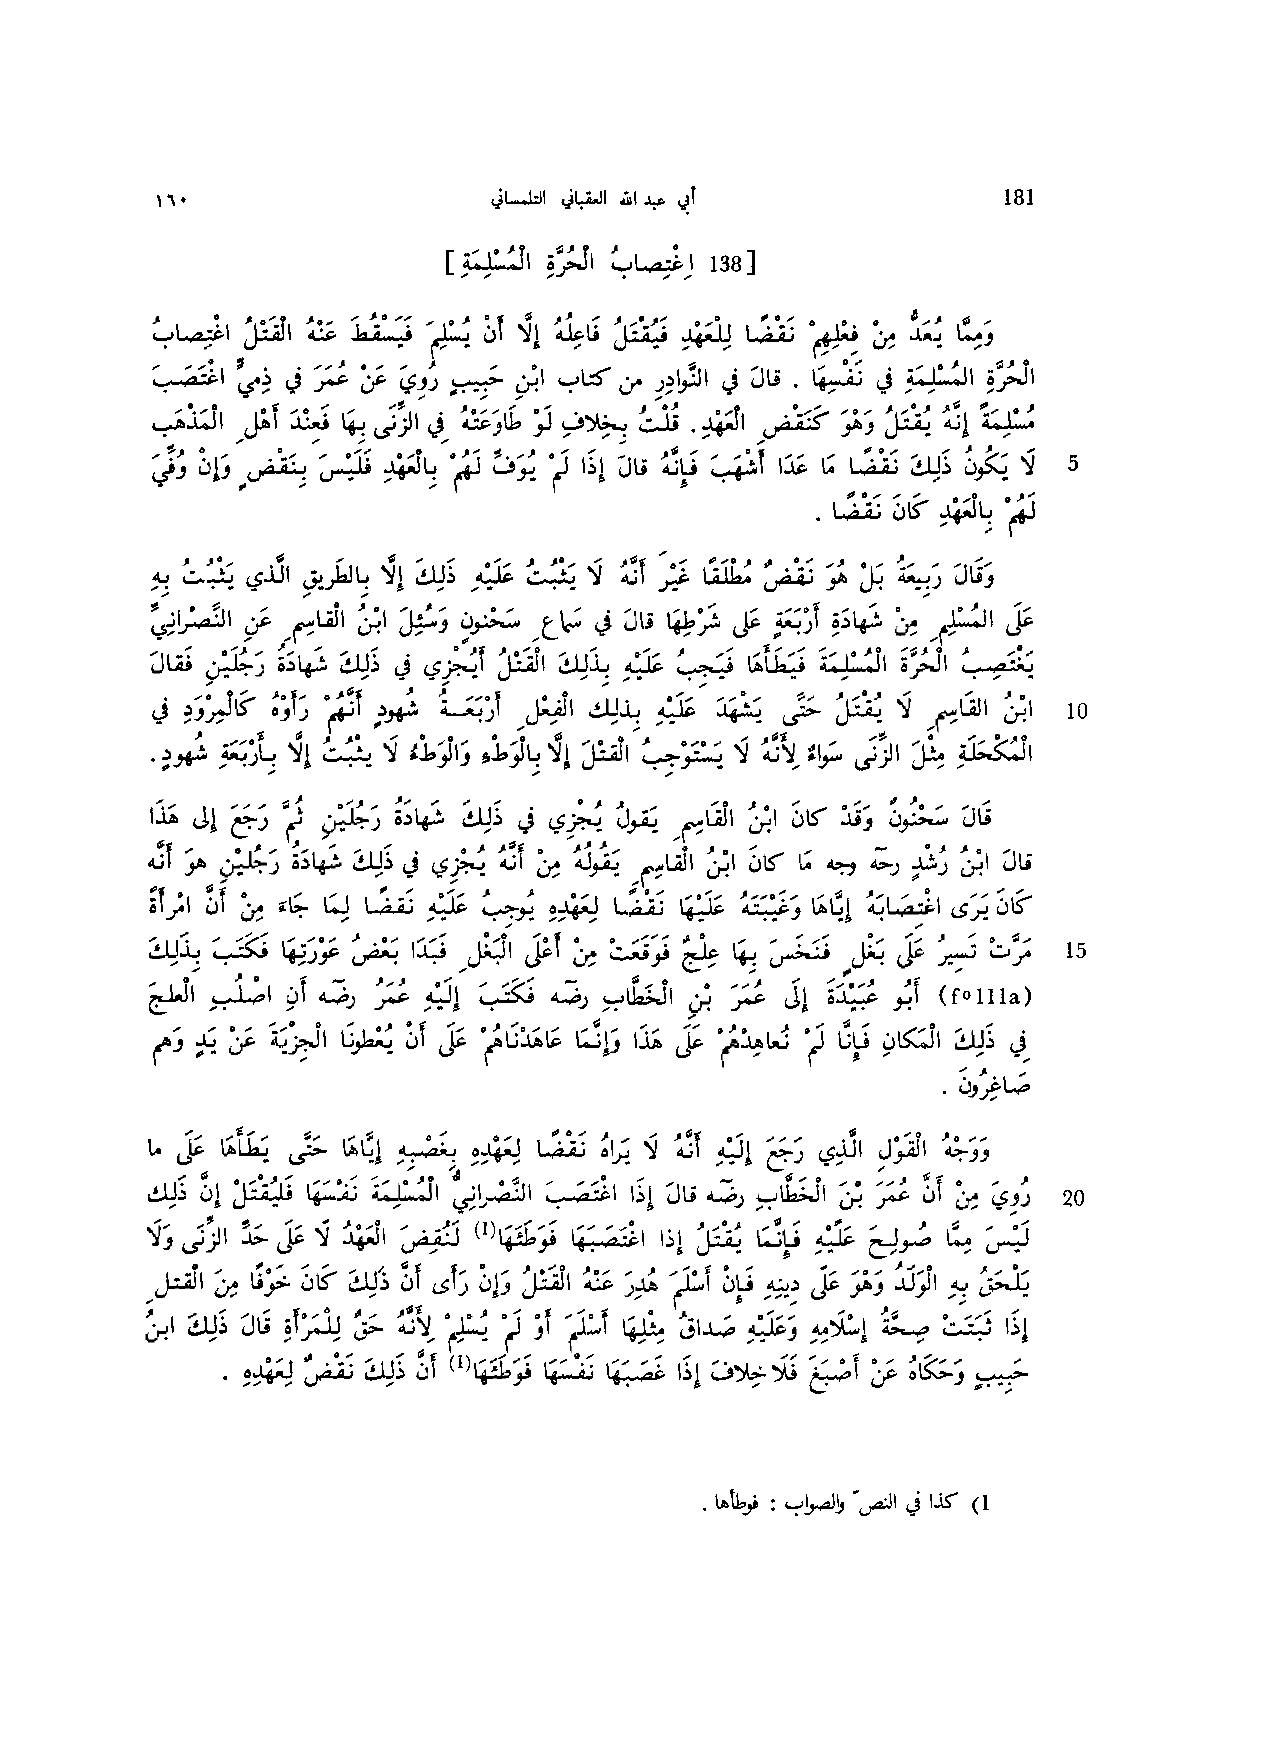 181 أبي عبد الله العقباني التلمساني ١٦٠
[138 اِغْتِصابُ الْحُرَّةِ الْمُسْلِمَةِ]
وَمِمَّا يُعَدُّ مِنْ فِعْلِهِمْ نَقْضًا لِلعَهْدِ فَيُقْتَلُ فَاعِلُهُ إِلَّا أَنْ يُسْلِمَ فَيَسْقُطَ عَنْهُ الْقَتْلُ اغْتِصابُ
الْحُرَّةِ الْمُسْلِمَةِ فِي نَفْسِهَا . قالَ فِي النَّوادِرِ من كتاب ابْنِ حَبِيبٍ رُوِيَ عَنْ عُمَرَ فِي ذِمِيٍّ اغْتَصَبَ
مُسْلِمَةً إِنَّهُ يُقْتَلُ وَهْوَ كَنَقْضِ الْعَهْدِ. قُلْتُ بِخِلافِ لَوْ طَاوَعَتْهُ فِي الزِّنَى بِهَا فَعِنْدَ أَهْلِ الْمَذْهَبِ
5 لَا يَكُونُ ذَلِكَ نَقْضًا مَا عَدَا أَشْهَبَ فَإِنَّهُ قالَ إِذَا لَمْ يُوَفَّ لَهُمْ بِالْعَهْدِ فَلَيْسَ بِنَقْضٍ وَإِنْ وُفِّيَ
لَهُمْ بِالْعَهْدِ كَانَ نَقْضًا .
وَقَالَ رَبِيعَةُ بَلْ هُوَ نَقْضٌ مُطْلَقًا غَيْرَ أَنَّهُ لَا يَثْبُتُ عَلَيْهِ ذَلِكَ إِلَّا بِالطَرِيقِ الَّذي يَثْبُتُ بِهِ
عَلَى الْمُسْلِمِ مِنْ شَهادَةِ أَرْبَعَةٍ عَلَى شَرْطِهَا قالَ فِي سَماعِ سَحْنونِ وَسُئِلَ ابْنُ الْقاسِمِ عَنِ النَّصْرانِيِّ
يَغْتَصِبُ الْحُرَّةَ الْمُسْلِمَةَ فَيَطَأُهَا فَيَجِبُ عَلَيْهِ بِذَلِكَ الْقَتْلُ أَيُجْزِي فِي ذَلِكَ شَهادَةُ رَجُلَيْنِ فَقالَ
10 ابْنُ القَاسِمِ لَا يُقْتَلُ حَتَّى يَشْهَدَ عَلَيْهِ بِذلِكَ الْفِعْلِ أَرْبَعَةُ شُهودٍ أَنَّهُمْ رَأَوْهُ كَالْمِرْوَدِ فِي
الْمُكْحَلَةِ مِثْلَ الزِّنَى سَواءً لِأَنَّهُ لَا يَسْتَوْجِبُ الْقَتْلَ إِلَّا بِالوَطْءِ وَالوَطْءُ لَا يَثْبُتُ إِلَّا بِأَرْبَعَةِ شُهودٍ.
قَالَ سَحْنُونُ وَقَدْ كانَ ابْنُ القَاسِمِ يَقولُ يُجْزِي فِي ذَلِكَ شَهادَةُ رَجُلَيْنِ ثُمَّ رَجَعَ إِلى هَذَا
قالَ ابْنُ رُشْدٍ رحَه وجه مَا كانَ ابْنُ الْقَاسِمِ يَقُولُهُ مِنْ أَنَّهُ يُجْزِي فِي ذَلِكَ شَهادَةُ رَجُلَيْنِ هوَ أَنَّه
كَانَ يَرَى اغْتِصَابَهُ إِيَّاهَا وَغَيْبَتَهُ عَلَيْهَا نَقْضًا لِعَهْدِهِ يُوجِبُ عَلَيْهِ نَقضًا لِمَا جَاءَ مِنْ أَنَّ امْرأَةً
15 مَرَّتْ تَسِيرُ عَلَى بَغْلٍ فَنَخَسَ بِهَا عِلْجٌ فَوَقَعَتْ مِنْ أَعْلَى الْبَغْلِ فَبَدَا بَعْضُ عَوْرَتِهَا فَكَتَبَ بِذَلِكَ
(fº 111a) أَبُو عُبَيْدَةَ إِلَى عُمَرَ بْنِ الْخَطَّابِ رضَه فَكَتَبَ إِلَيْهِ عُمَرَ رضَه أَنِ اصْلُبِ الْعلجَ
فِي ذَلِكَ الْمَكانِ فَإِنَّا لَمْ نُعاهِدْهُمْ عَلَى هَذَا وَإِنَّمَا عَاهَدْنَاهُمْ عَلَى أَنْ يُعْطونَا الْجِزْيَةَ عَنْ يَدٍ وَهم
صَاغِرُونَ .
وَوَجْهُ الْقَوْلِ الَّذِي رَجَعَ إِلَيْهِ أَنَّهُ لَا يَراهُ نَقْضًا لِعَهْدِهِ بِغَصْبِهِ إِيَّاهَا حَتَّى يَطَأَهَا عَلَى ما
20 رُوِيَ مِنْ أَنَّ عُمَرَ بْنَ الْخَطَّابِ رضَه قالَ إِذَا اغْتَصَبَ النَّصْرانِيُّ الْمُسْلِمَةَ نَفْسَهَا فَلْيُقْتَلْ إِنَّ ذَلِكَ
لَيْسَ مِمَّا صُولِحَ عَلَيْهِ فَإِنَّمَا يُقْتَلُ إذا اغْتَصَبَهَا فَوَطِئَهَا(1) لَنُقِضَ الْعَهْدُ لَا عَلَى حَدِّ الزِّنَى وَلَا
يَلْحَقُ بِهِ الْوَلَدُ وَهْوَ عَلَى دِينِهِ فَإِنْ أَسْلَمَ هُدِرَ عَنْهُ الْقَتْلُ وَإِنْ رَأَى أَنَّ ذَلِكَ كَانَ خَوْفًا مِنَ الْقتلِ
إِذَا ثَبَتَتْ صِحَّةُ إِسْلامِهِ وَعَلَيْهِ صَداقُ مِثْلِهَا أَسْلَمَ أَوْ لَمْ يُسْلِمْ لِأَنَّهُ حَقٌّ لِلْمَرْأَةِ قَالَ ذَلِكَ ابنُ
حَبِيبٍ وَحَكَاهُ عَنْ أَصْبَغَ فَلَا خِلافَ إِذَا غَصَبَهَا نَفْسَهَا فَوَطِئَهَا(1) أَنَّ ذَلِكَ نَقْضٌ لِعَهْدِهِ .
1) كذا في النصّ والصواب : فوطأها .